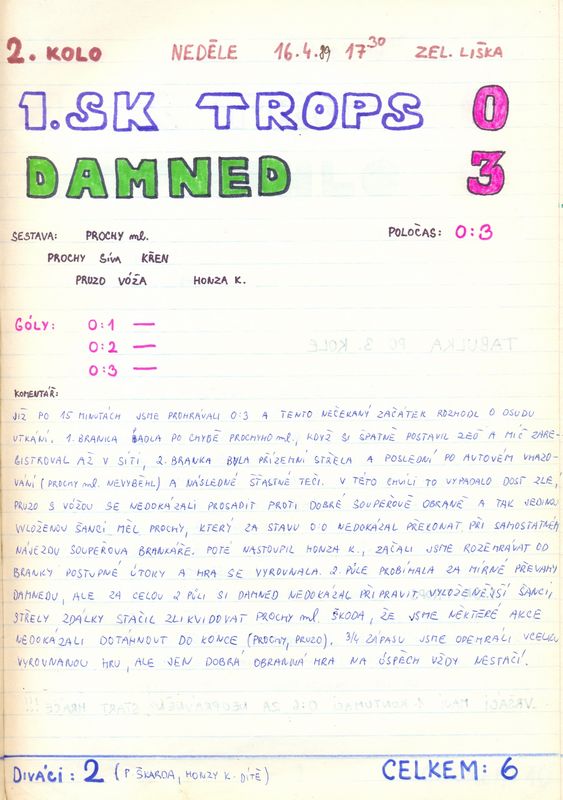 2. KOLO NEDĚLE 16.4.89 17³⁰ ZEL. LIŠKA
1.SK TROPS 0
DAMNED 3
SESTAVA: PROCHY ml. POLOČAS: 0:3
PROCHY SÍVA KŘEN
PRUZO VÓŽA HONZA K.
GÓLY: 0:1 —
0:2 —
0:3 —
KOMENTÁŘ:
JIŽ PO 15 MINUTÁCH JSME PROHRÁVALI 0:3 A TENTO NEČEKANÝ ZAČÁTEK ROZHODL O OSUDU
UTKÁNÍ. 1. BRANKA PADLA PO CHYBĚ PROCHYHO ml., KDYŽ SI ŠPATNĚ POSTAVIL ZEĎ A MÍČ ZARE-
GISTROVAL AŽ V SÍTI, 2. BRANKA BYLA PŘÍZEMNÍ STŘELA A POSLEDNÍ PO AUTOVÉM VHAZO-
VÁNÍ (PROCHY ml. NEVYBĚHL) A NÁSLEDNÉ ŠŤASTNÉ TEČI. V TÉTO CHVÍLI TO VYPADALO DOST ZLE,
PRUZO S VÓŽOU SE NEDOKÁZALI PROSADIT PROTI DOBRÉ SOUPEŘOVĚ OBRANĚ A TAK JEDINOU
VYLOŽENOU ŠANCI MĚL PROCHY, KTERÝ ZA STAVU 0:0 NEDOKÁZAL PŘEKONAT PŘI SAMOSTATNÉM
NÁJEZDU SOUPEŘOVA BRANKÁŘE. POTÉ NASTOUPIL HONZA K., ZAČALI JSME ROZEHRÁVAT OD
BRANKY POSTUPNÉ ÚTOKY A HRA SE VYROVNALA. 2. PŮLE PROBÍHALA ZA MÍRNÉ PŘEVAHY
DAMNEDU, ALE ZA CELOU 2. PŮLI SI DAMNED NEDOKÁZAL PŘIPRAVIT VYLOŽENĚJŠÍ ŠANCI,
STŘELY ZDÁLKY STAČIL ZLIKVIDOVAT PROCHY ml. ŠKODA, ŽE JSME NĚKTERÉ AKCE
NEDOKÁZALI DOTÁHNOUT DO KONCE (PROCHY, PRUZO). 3/4 ZÁPASU JSME ODEHRÁLI VCELKU
VYROVNANOU HRU, ALE JEN DOBRÁ OBRANNÁ HRA NA ÚSPĚCH VŽDY NESTAČÍ.
DIVÁCI: 2 (P. ŠKARDA, HONZY K. DÍTĚ) CELKEM: 6